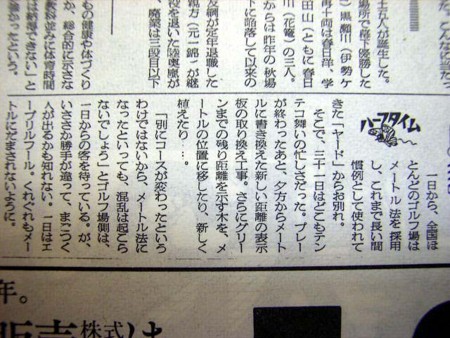 士五人が誕生した。
場所で十両優勝した
黒瀬川（伊勢ケ
再十両は春日洋、学
田山（ともに春日
川（花籠）の三人。
からは昨年の秋場
に陥落して以来の
友綱が定年退職した
親方（元一錦）が継
段を退いた陸奥嵐が
廃業は三段目以下
もの健康や体づくり
か、総合的に示さな
教科並みに体育時間
納得できない」と
強かったという。
ハーフタイム
一日から、全国ほ
とんどのゴルフ場は
メートル法を採用
し、これまで長い間
慣例として使われて
きた「ヤード」からお別れ。
そこで、三十一日はどこもテン
テコ舞いの忙しさだった。プレー
が終わったあと、夕方からメート
ルに書き換えた新しい距離の表示
板の取り換え工事。さらにグリー
ンまでの残り距離を示す木を、メ
ートルの位置に移したり、新しく
植えたり…。
「別にコースが変わったという
わけではないから、メートル法に
なったといっても、混乱は起こら
ないでしょう」とゴルフ場側は、
一日からの客を待っている。が、
いささか勝手が違って、まごつく
人が出るかも知れない。一日はエ
ープリルフール。くれぐれもメー
トルにだまされないように。
年。
販売株式は